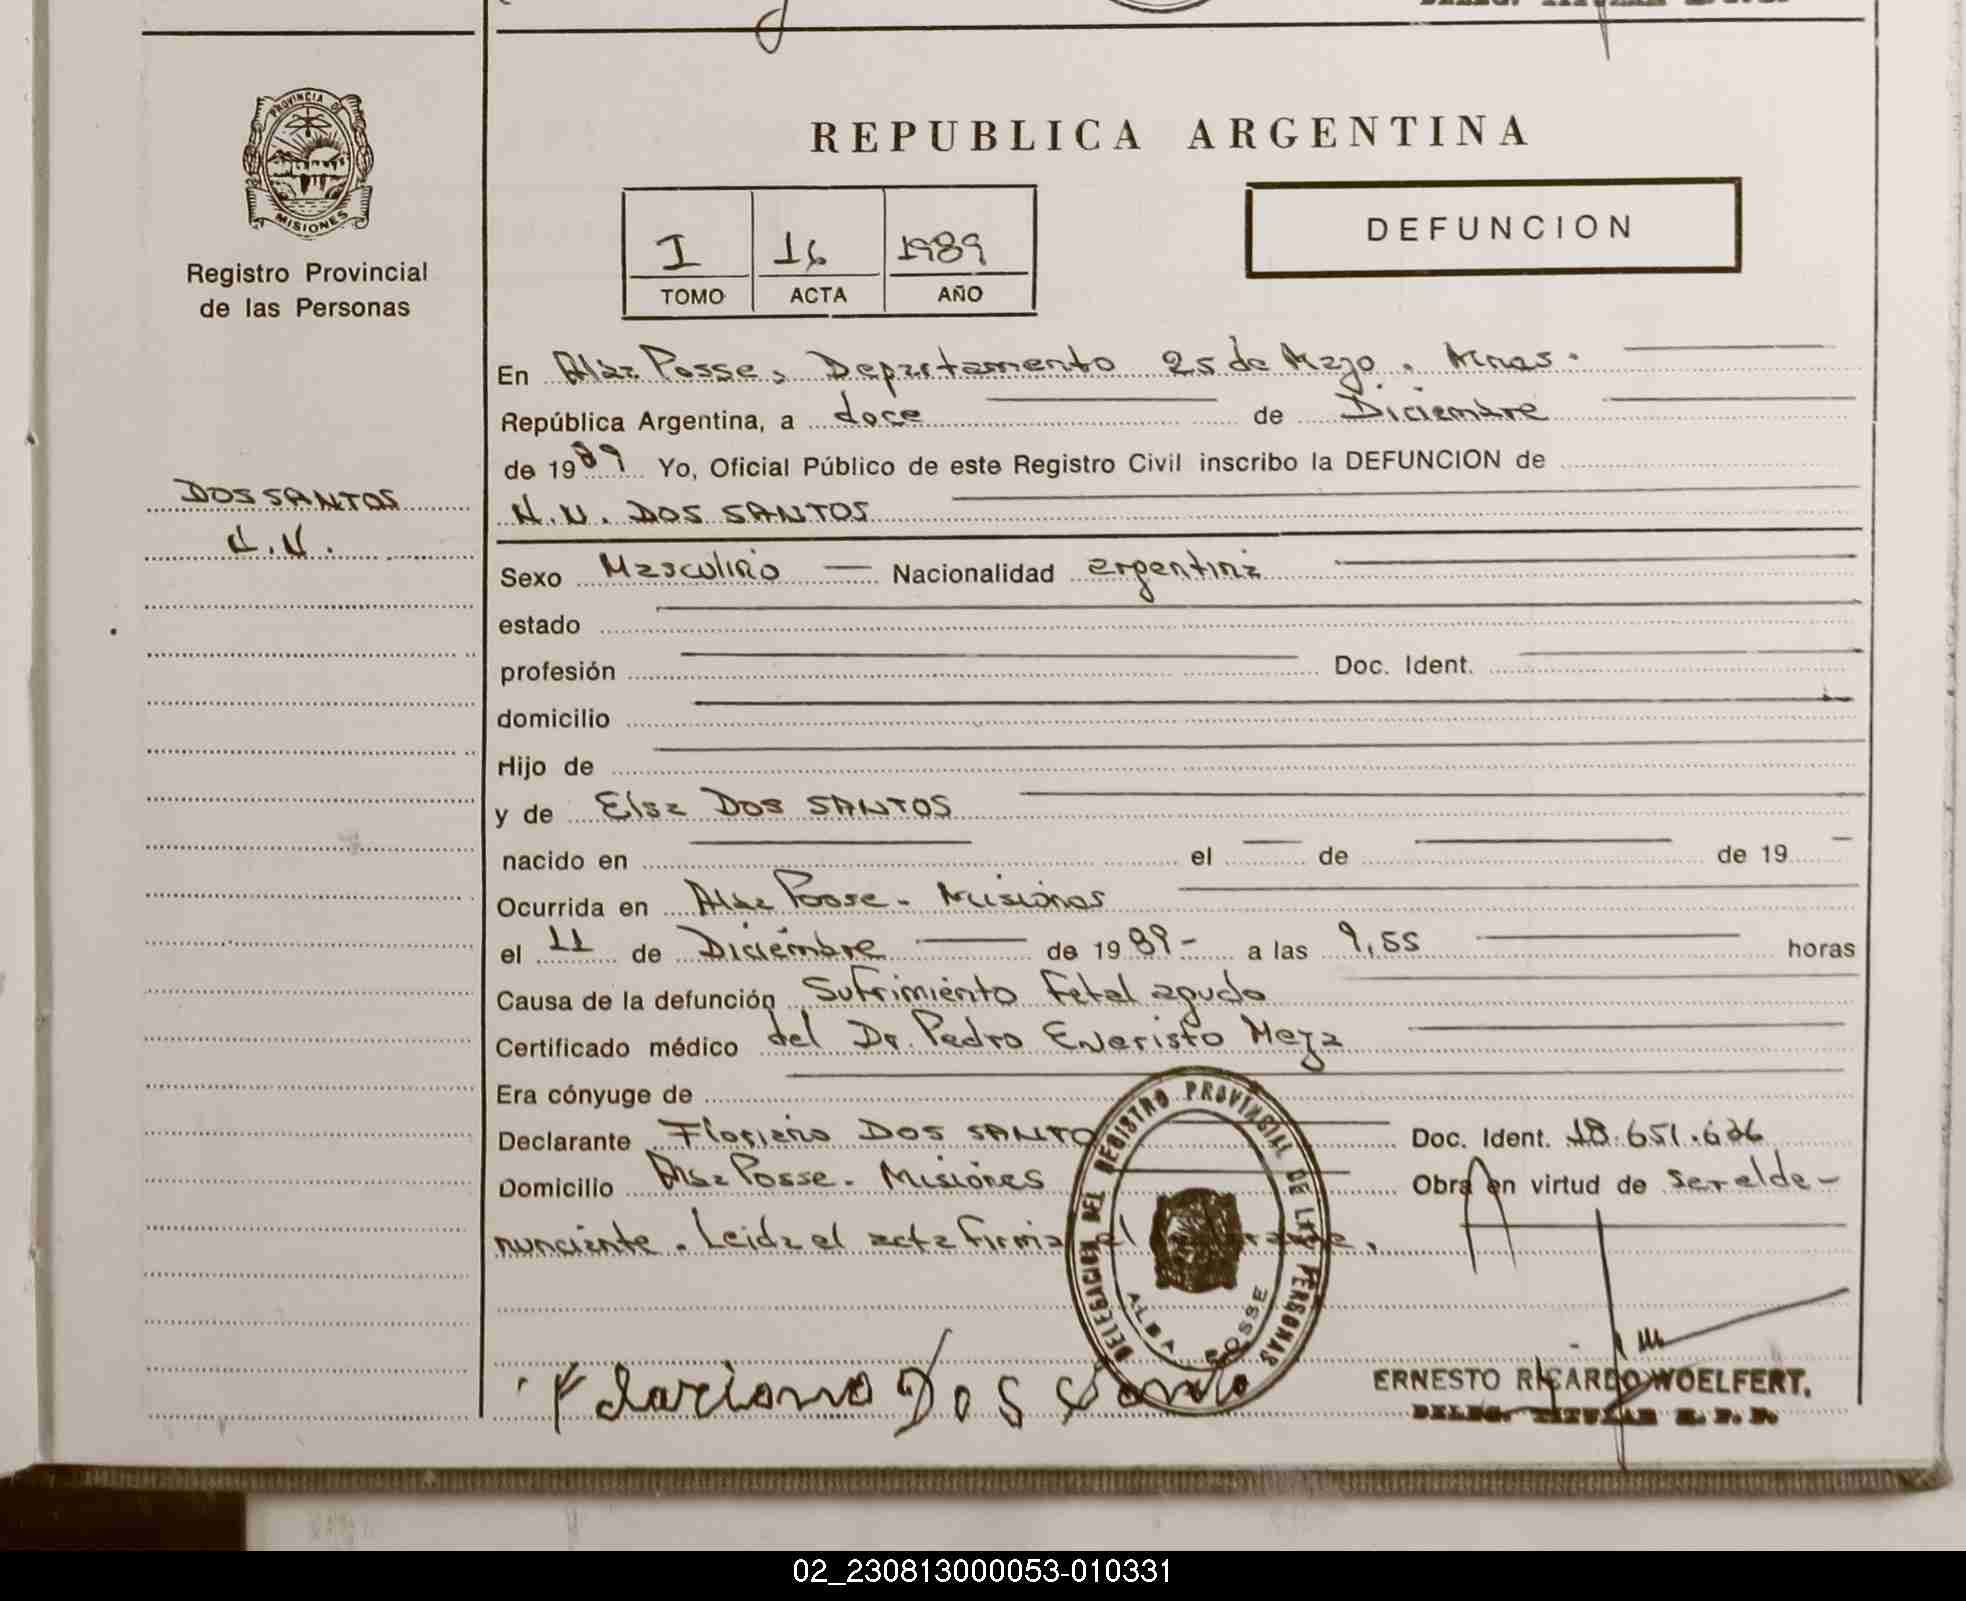 PROVINCIA DE
MISIONES
Registro Provincial
de las Personas
DOS SANTOS
N.N.
REPUBLICA ARGENTINA
I 16 1989
TOMO ACTA AÑO
DEFUNCION
En Alba Posse, Departamento 25 de Mayo. Mnes.
República Argentina, a doce de Diciembre
de 1989 Yo, Oficial Público de este Registro Civil inscribo la DEFUNCION de
N.N. DOS SANTOS
Sexo Masculino Nacionalidad argentina
estado
profesión Doc. Ident.
domicilio
Hijo de
y de Elsa DOS SANTOS
nacido en el de de 19
Ocurrida en Alba Posse - Misiones
el 11 de Diciembre de 1989- a las 9,55 horas
Causa de la defunción Sufrimiento Fetal agudo
Certificado médico del Dr. Pedro Evaristo Meza
Era cónyuge de
Declarante Floriano DOS SANTO
Doc. Ident. 18.651.626
Domicilio Alba Posse - Misiones
Obra en virtud de Ser el de-
nunciante. Leida el acta firma el
DELEGACION DEL REGISTRO PROVINCIAL DE LAS PERSONAS
ALBA POSSE
Dos Santo
ERNESTO RICARDO WOELFERT.
DELEG. TITULAR R. P. P.
02_230813000053-010331